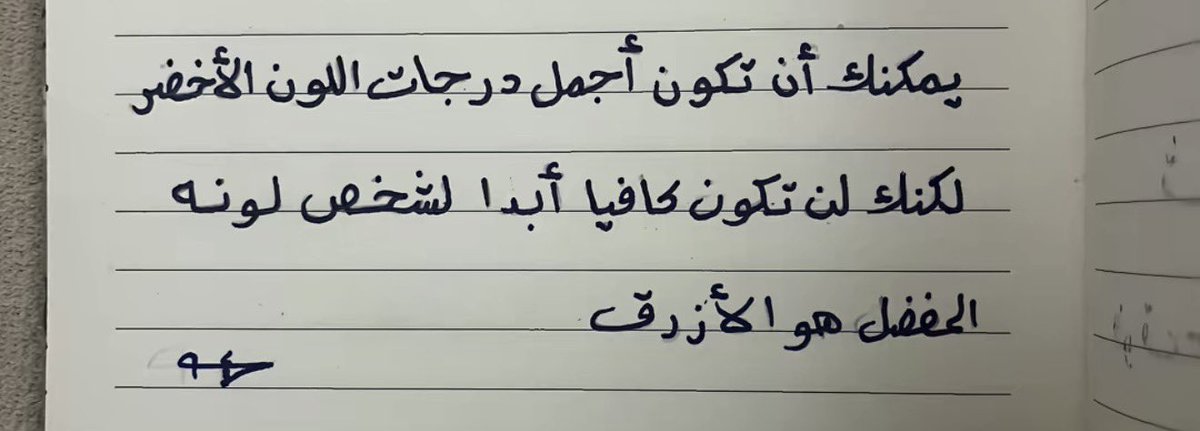 يمكنك أن تكون أجمل درجات اللون الأخضر
لكنك لن تكون كافيا أبدا لشخص لونه
المفضل هو الأزرق